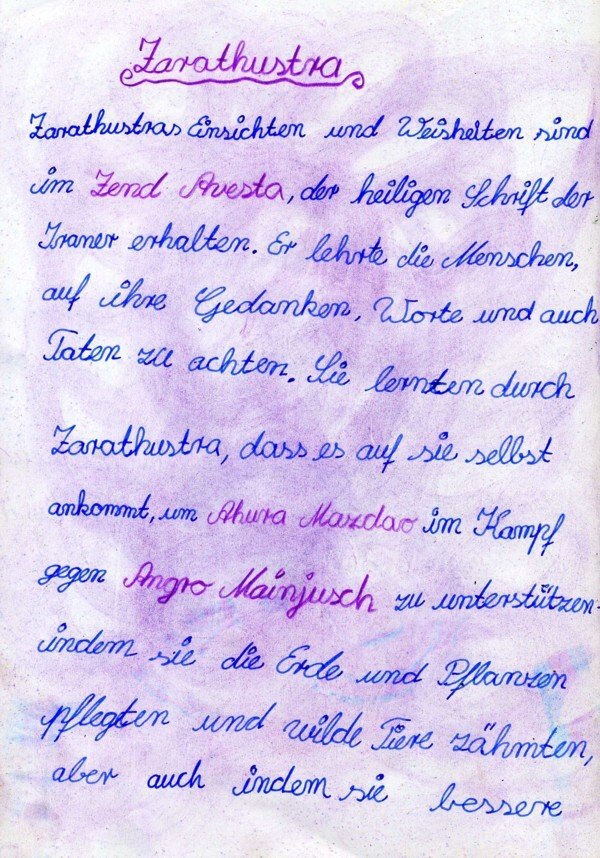 Zarathustra
Zarathustras Einsichten und Weisheiten sind
im Zend Avesta, der heiligen Schrift der
Iraner erhalten. Er lehrte die Menschen,
auf ihre Gedanken, Worte und auch
Taten zu achten. Sie lernten durch
Zarathustra, dass es auf sie selbst
ankommt, um Ahura Mazdao im Kampf
gegen Angro Mainjusch zu unterstützen.
indem sie die Erde und Pflanzen
pflegten und wilde Tiere zähmten,
aber auch indem sie bessere